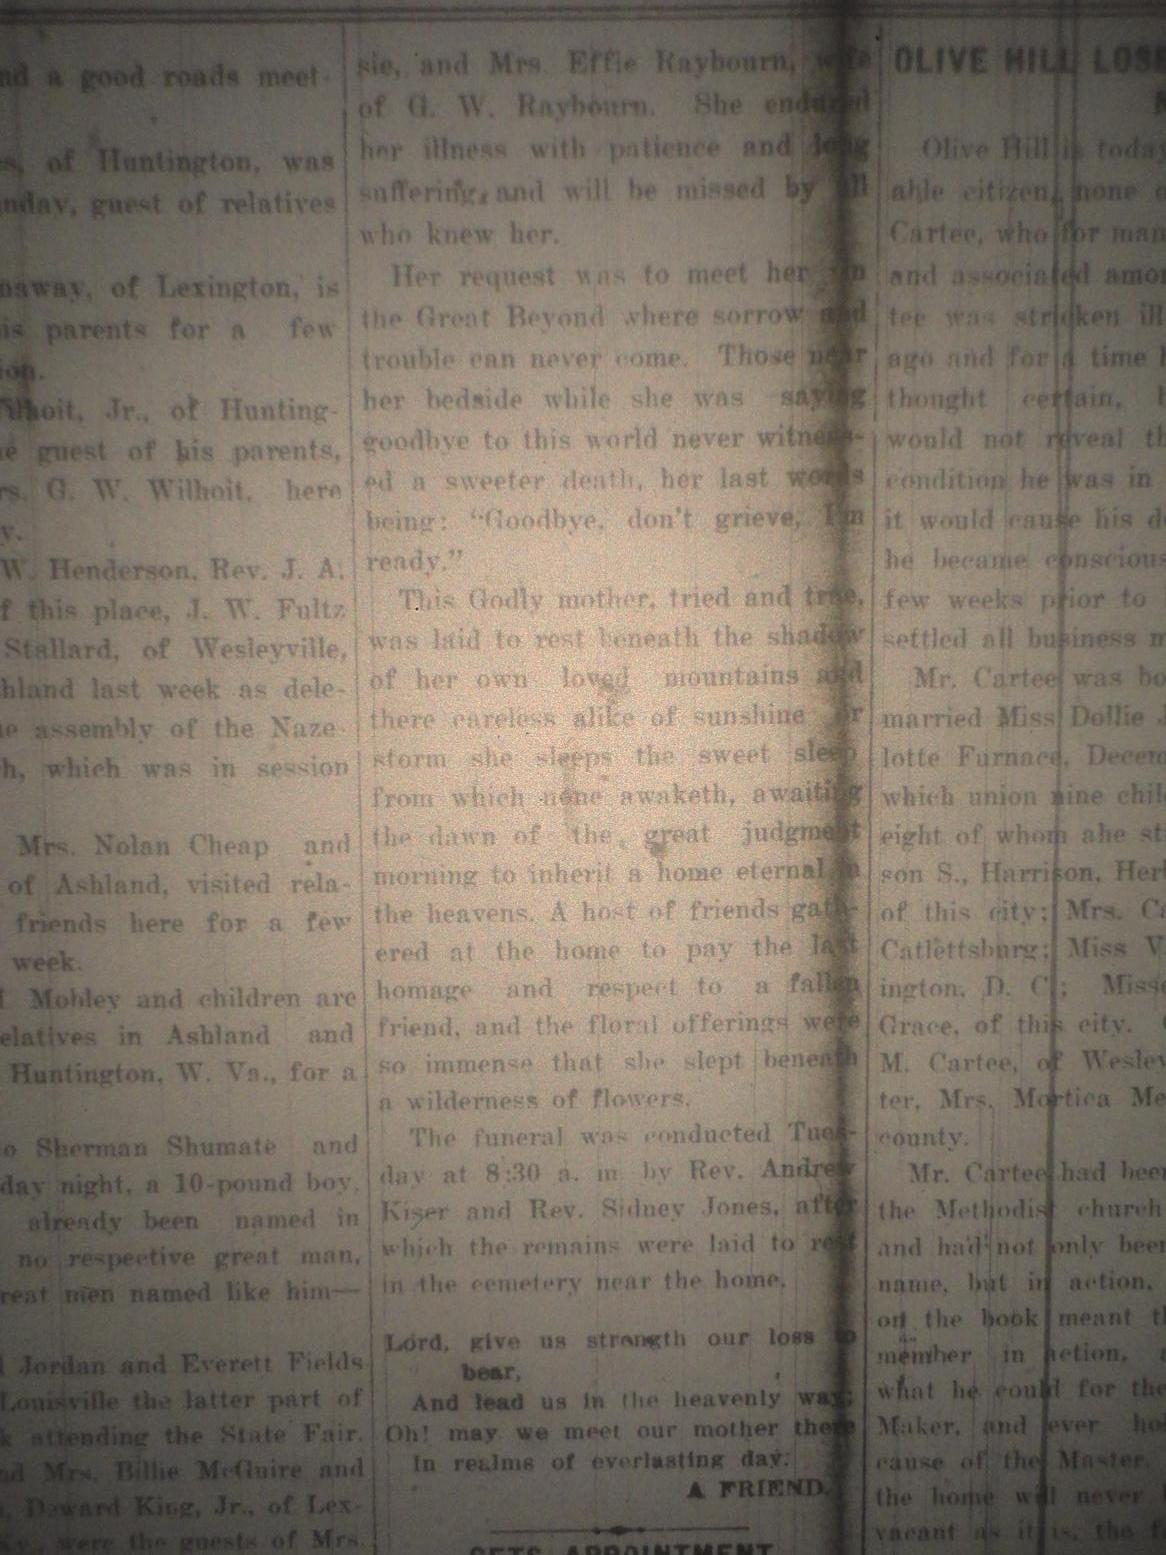 nd a good roads meet-
of Huntington, was
nday, guest of relatives
naway, of Lexington, is
is parents for a few
ion.
lhoit, Jr., of Hunting-
e guest of his parents,
rs. G. W. Wilhoit, here
y.
W. Henderson, Rev. J. A.
f this place, J. W. Fultz
Stallard, of Wesleyville,
hland last week as dele-
e assembly of the Naze-
h, which was in session
Mrs. Nolan Cheap and
of Ashland, visited rela-
friends here for a few
week.
Mobley and children are
elatives in Ashland and
Huntington, W. Va., for a
o Sherman Shumate and
day night, a 10-pound boy,
already been named in
no respective great man,
reat men named like him—
Jordan and Everett Fields
Louisville the latter part of
k attending the State Fair.
nd Mrs. Billie McGuire and
Daward King, Jr., of Lex-
Ky., were the guests of Mrs.
sie, and Mrs. Effie Raybourn, wife
of G. W. Raybourn. She endured
her illness with patience and long
suffering, and will be missed by all
who knew her.
Her request was to meet her in
the Great Beyond where sorrow and
trouble can never come. Those near
her bedside while she was saying
goodbye to this world never witness-
ed a sweeter death, her last words
being: "Goodbye, don't grieve, I'm
ready."
This Godly mother, tried and true,
was laid to rest beneath the shadow
of her own loved mountains and
there careless alike of sunshine or
storm she sleeps the sweet sleep
from which none awaketh, awaiting
the dawn of the great judgment
morning to inherit a home eternal in
the heavens. A host of friends gath-
ered at the home to pay the last
homage and respect to a fallen
friend, and the floral offerings were
so immense that she slept beneath
a wilderness of flowers.
The funeral was conducted Tues-
day at 8:30 a. m by Rev. Andrew
Kiser and Rev. Sidney Jones, after
which the remains were laid to rest
in the cemetery near the home.
Lord, give us strength our loss to
bear,
And lead us in the heavenly way;
Oh! may we meet our mother there
In realms of everlasting day.
A FRIEND.
GETS APPOINTMENT
OLIVE HILL LOSE
Olive Hill is today
able citizen, none o
Cartee, who for man
and associated amon
tee was stricken ill
ago and for a time h
thought certain,
would not reveal th
condition he was in
it would cause his de
he became conscious
few weeks prior to
settled all business m
Mr. Cartee was bo
married Miss Dollie
lotte Furnace, Decem
which union nine chil
eight of whom ahe st
son S., Harrison, Her
of this city; Mrs. C
Catlettsburg; Miss V
ington, D. C.; Misse
Grace, of this city.
M. Cartee, of Wesley
ter, Mrs. Mortica Me
county.
Mr. Cartee had been
the Methodist church
and had not only been
name, but in action.
on the book meant t
member in action,
what he could for the
Maker, and ever ho
cause of the Master.
the home will never
vacant as it is, the f